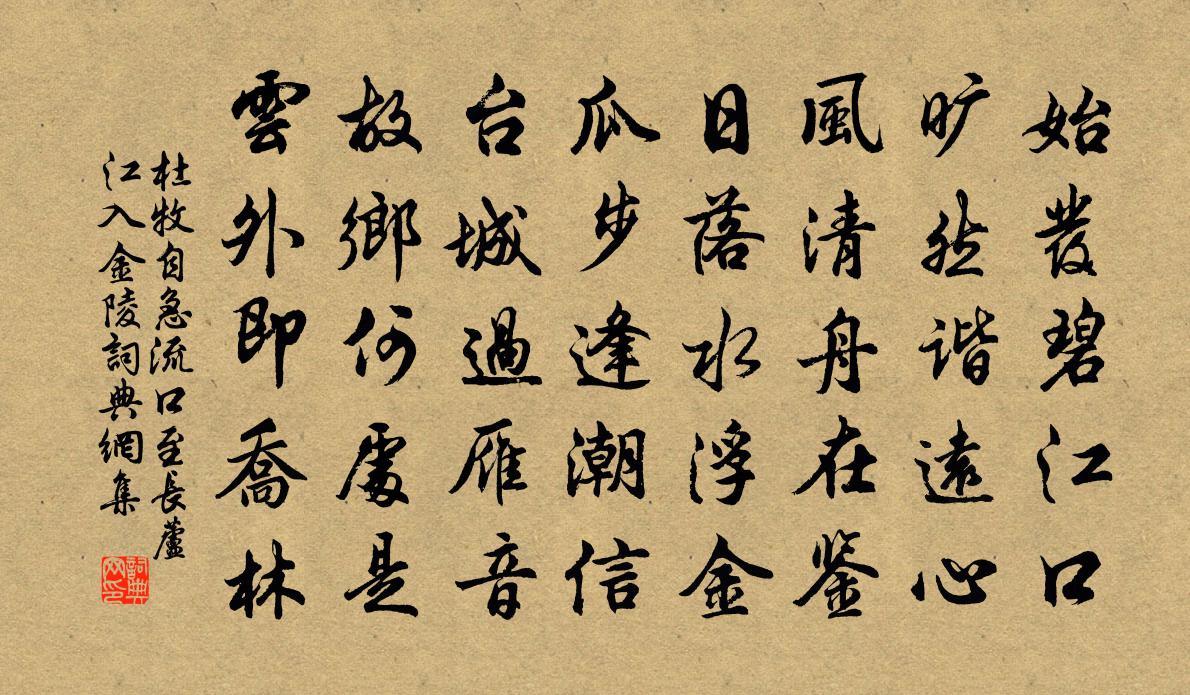 始發碧江口
旷然谐遠心
風清舟在鉴
日落水浮金
瓜步逢潮信
台城過雁音
故鄉何處是
雲外即喬林
杜牧自急流口至長蘆
江入金陵詞典網集
詞典
网印